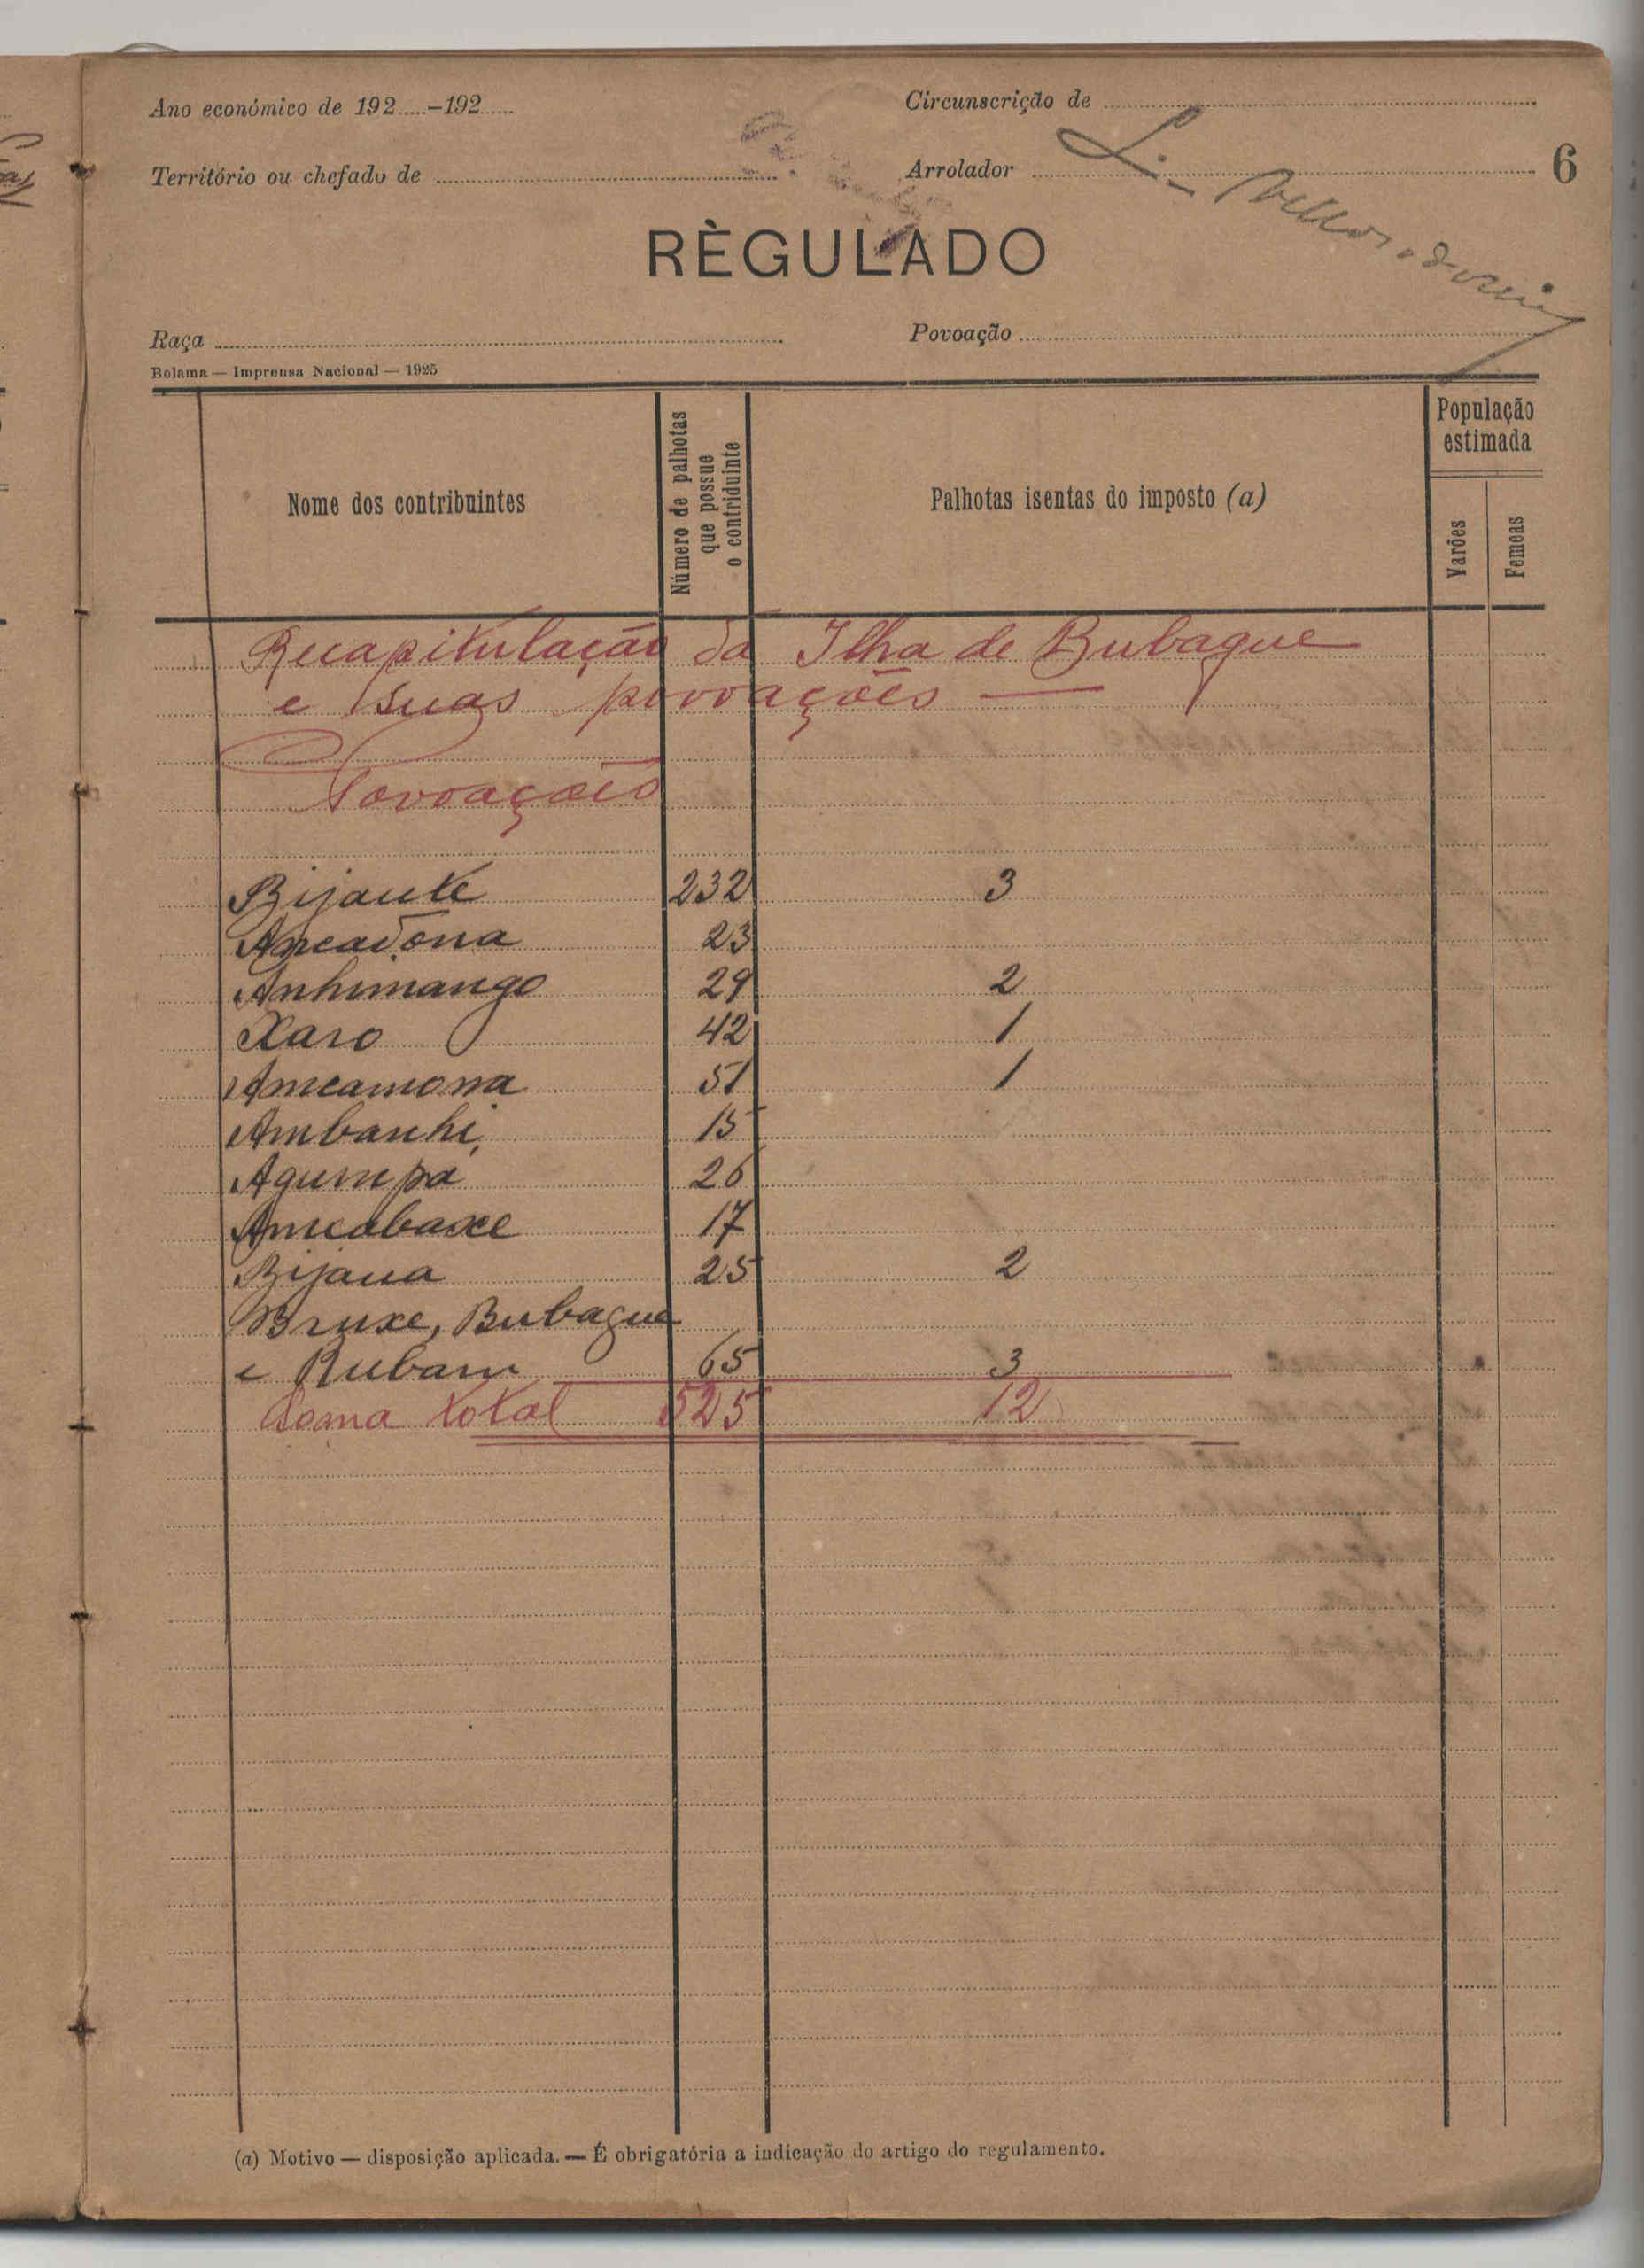 Ano económico de 192.....–192.....
Circunscrição de
Território ou chefado de
Arrolador
6
RÈGULADO
Raça
Povoação
Bolama — Imprensa Nacional — 1925
Nome dos contribuintes
Número de palhotas que possue o contriduinte
Palhotas isentas do imposto (a)
População estimada
Varões
Femeas
Recapitulação da Ilha de Bubaque
e suas povoações —
Povoações
Bijante 232 3
Ancadona 23
Anhimango 29 2
Xaro 42 1
Ancamona 51 1
Ambanhi 15
Agumpa 26
Ancabaxe 17
Bijana 25 2
Bruxe, Bubaque
e Rubam 65 3
Soma total 525 12
(a) Motivo — disposição aplicada. — É obrigatória a indicação do artigo do regulamento.